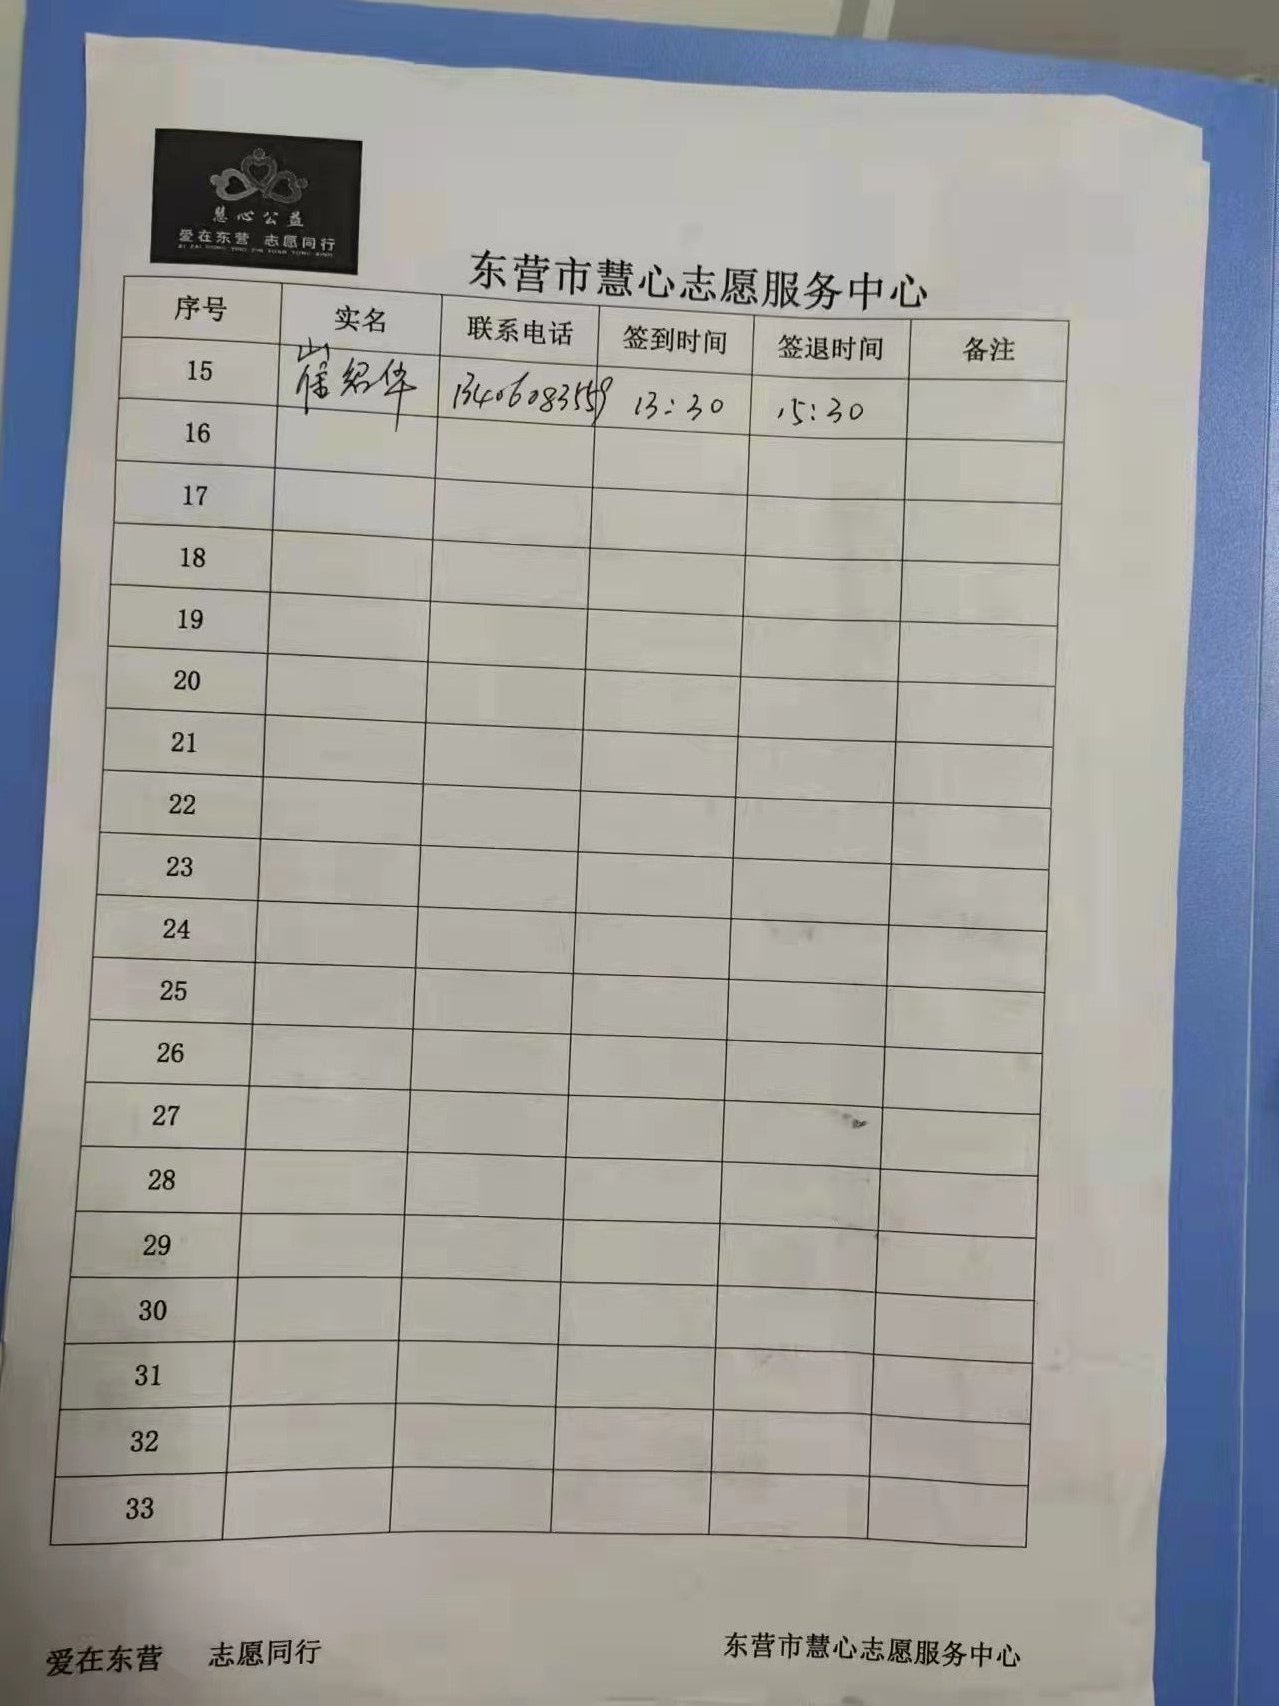 慧心公益
爱在东营 志愿同行
AI ZAI DONG YING ZHI YUAN TONG XING
东营市慧心志愿服务中心
序号 实名 联系电话 签到时间 签退时间 备注
15 崔绍华 13406083559 13:30 15:30
16
17
18
19
20
21
22
23
24
25
26
27
28
29
30
31
32
33
爱在东营 志愿同行 东营市慧心志愿服务中心